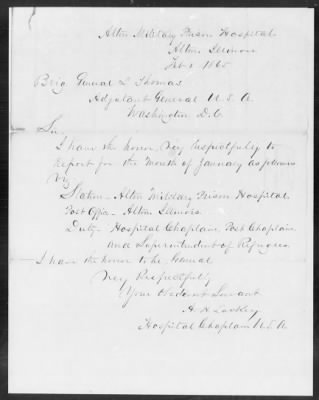 Alton Military Prison Hospital
Alton Illinois
Feb 1865
Brig General L Thomas
Adjutant General U.S.A
Washington D.C
Sir,
I have the honor, very respectfully to
report for the Month of January as follows
Viz
Station - Alton Military Prison Hospital
Post Office - Alton Illinois
Duty - Hospital Chaplain, Post Chaplain,
and Superintendent of Refugees
I have the honor to be General
Very Respectfully
Your Obedient Servant
Hospital Chaplain U.S.A